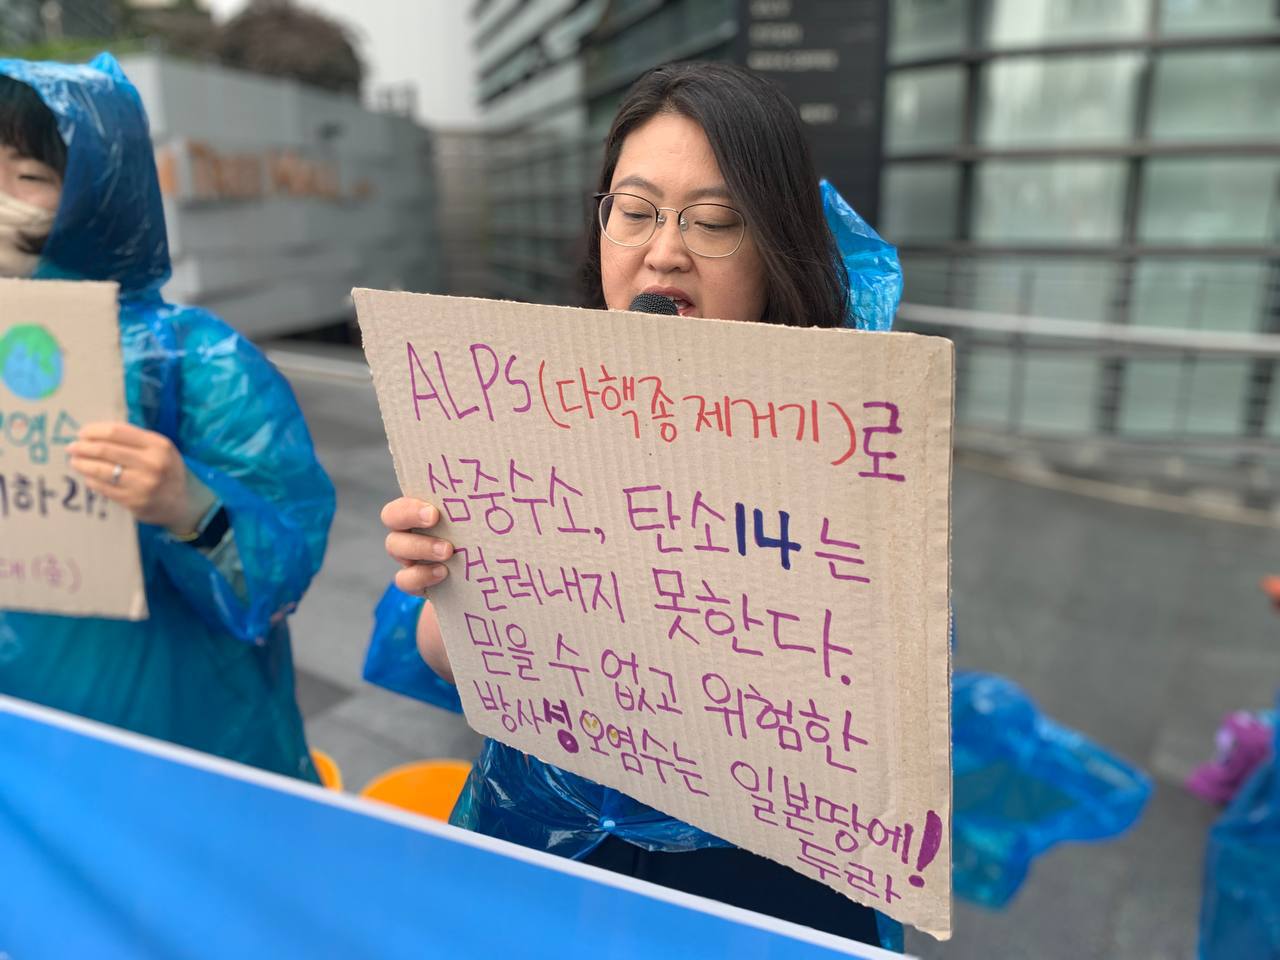 ALPS(다핵종 제거기)로
삼중수소, 탄소14는
걸러내지 못한다.
믿을 수 없고 위험한
방사성오염수는 일본땅에!
두라
염수
하라!